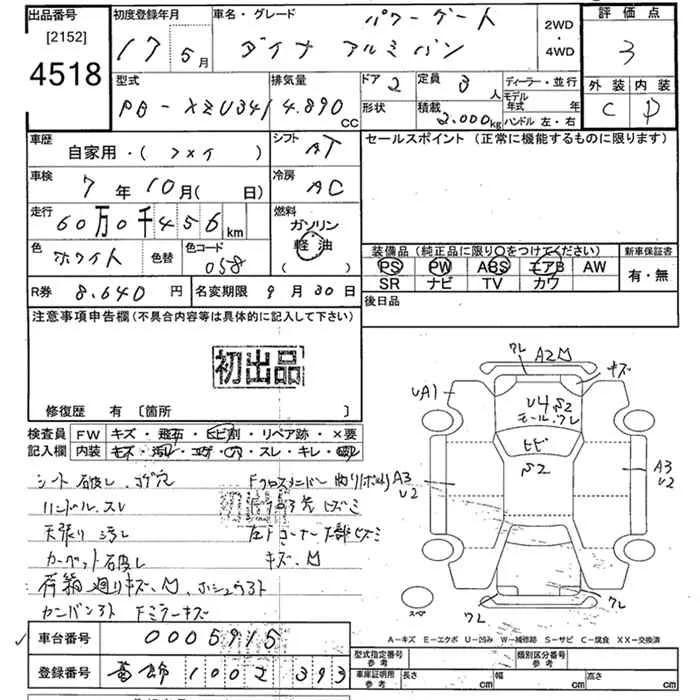 出品番号
[2152]
4518
初度登録年月
17 5月
車名・グレード
パワーゲート
ダイナ アルミバン
2WD
・
4WD
評価点
3
外装 内装
C D
型式
PB-XZU341
排気量
4.890 CC
ドア 2
形状
定員 3人
積載 2.000kg
ディーラー・並行
モデル年式 年
ハンドル 左・右
車歴
自家用・( )
シフト AT
車検
7年10月( 日)
冷房 AC
走行
60万0千456km
燃料
ガソリン
軽油
( )
色 ホワイト
色替
色コード 058
R券 8.640円
名変期限 9月30日
セールスポイント(正常に機能するものに限ります)
装備品(純正品に限り○をつけてください)
PS PW ABS エアB AW
SR ナビ TV カワ
新車保証書
有・無
後日品
注意事項申告欄(不具合内容等は具体的に記入して下さい)
初出品
修復歴 有 [箇所 ]
検査員
記入欄
FW キズ・飛石・ヒビ割・リペア跡・×要
内装 キズ・汚レ・コゲ・穴・スレ・キレ・
シート破レ.コゲ穴
ハンドルスレ
天張り汚レ
カーペット破レ
荷箱廻りキズ.
カンバンアト Fミラーキズ
初出品
キズ.
ワレ A2
キズ
UA1
U4 S2
モールワレ
ヒビ
S2
A3
U2
A3
U2
ワレ
ワレ
スペア
A-キズ E-エクボ U-凹み W-補修跡 S-サビ C-腐食 XX-交換済
車台番号 0005915
登録番号 葛飾 100 393
型式指定番号
参考
類別区分番号
参考
車庫証明用
参考
長さ cm
幅 cm
高さ cm